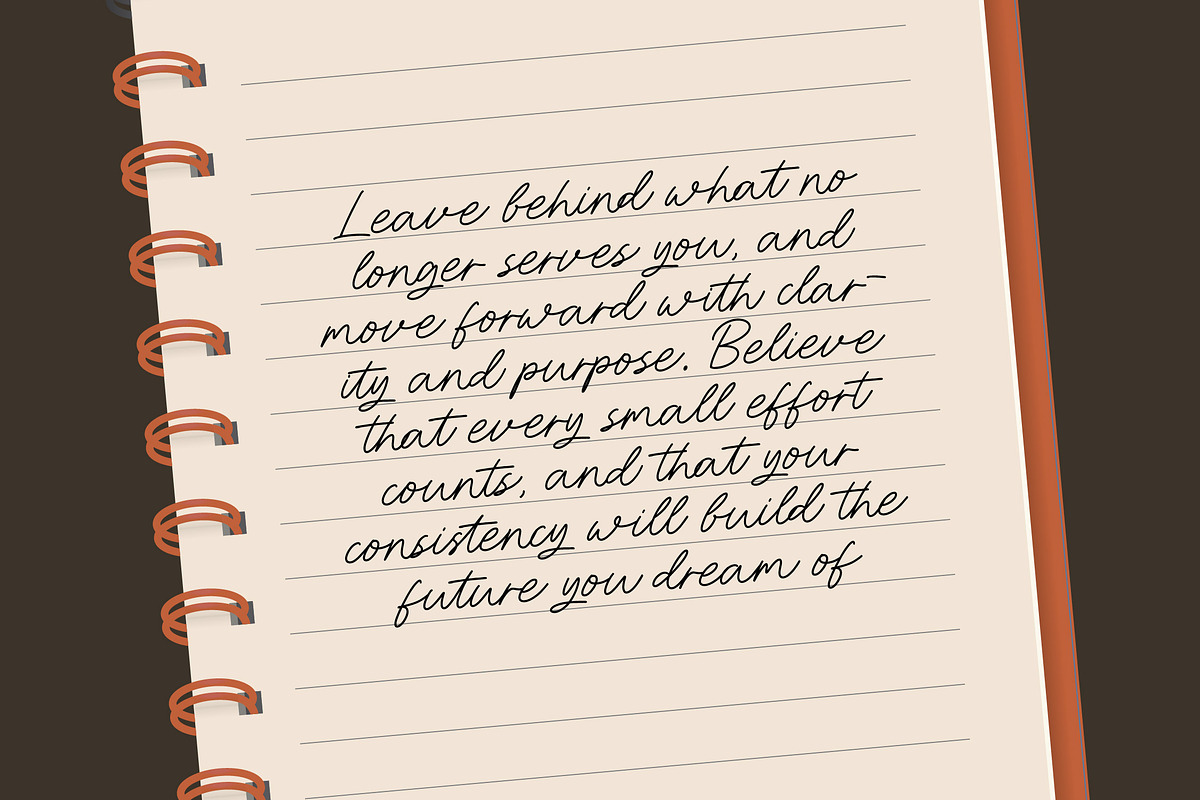 Leave behind what no
longer serves you, and
move forward with clar-
ity and purpose. Believe
that every small effort
counts, and that your
consistency will build the
future you dream of